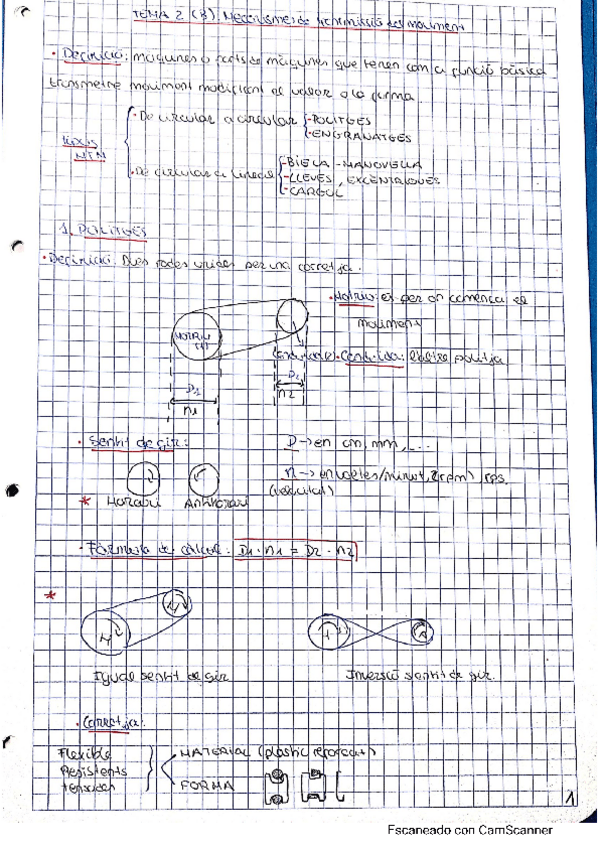 TEMA 2 (B). Mecanismes de transmissió del moviment
· Definició: màquines o parts de màquines que tenen com a funció bàsica
transmetre moviment modificant el valor o la forma.
De circular a circular
-POLITGES
-ENGRANATGES
MTM
De circular a lineal
-BIELA-MANOVELLA
-LLEVES, EXCÈNTRIQUES
-CARGOL
1. POLITGES
· Definició: Dues rodes unides per una corretja.
· Motriu: és per on comença el
moviment
· Conduida: l'altre politja
D1
D2
n1
n2
· Sentit de gir:
D → en cm, mm, ...
n → en voltes/minut, (rpm) rps.
(velocitat)
* Horari
Antihorari
· Fórmula de càlcul: D1 · n1 = D2 · n2
*
Igual sentit de gir
Inversió sentit de gir.
· Corretja:
Flexible
Resistents
MATERIAL (plàstic reforçat)
FORMA
1
Escaneado con CamScanner